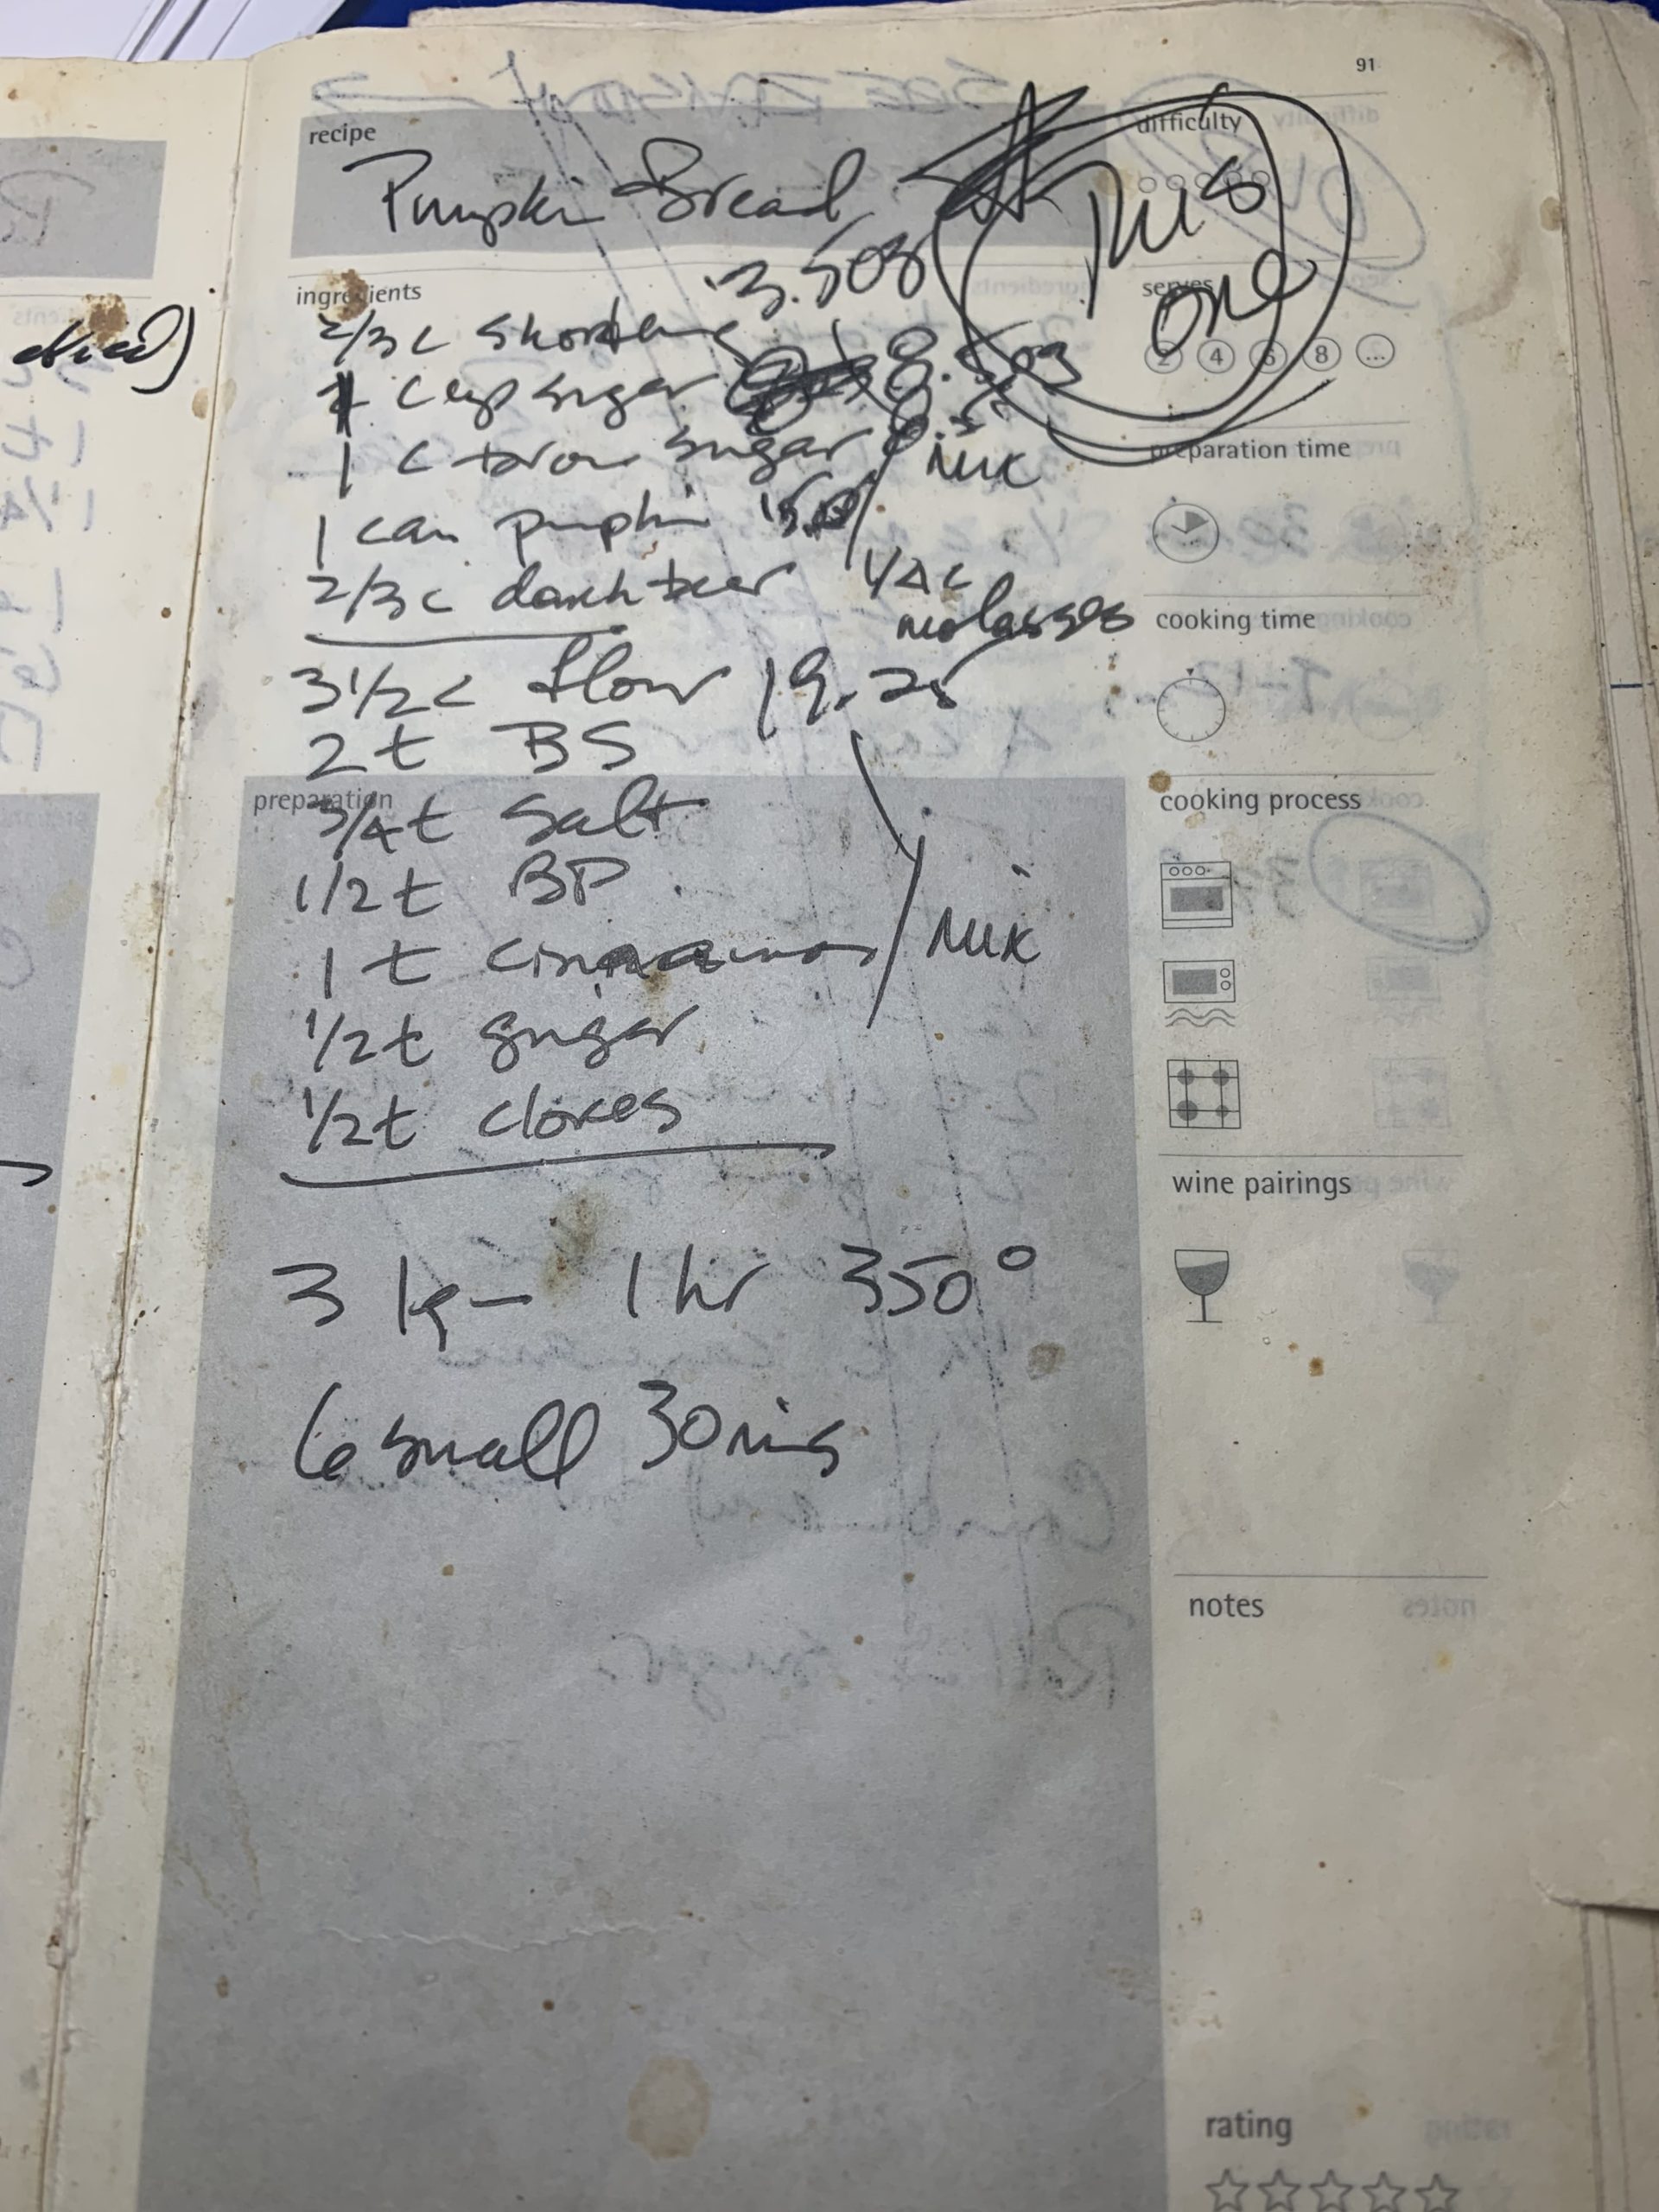 91
recipe
Pumpkin Bread
difficulty
This
one
ingredients
3.5oz
serves
2/3 c shortening
2 4 6 8 ...
1 cup sugar 8.5oz
1 c brown sugar 8.5
mix
preparation time
1 can pumpkin 15
2/3 c dark beer 1/4 c
molasses
cooking time
3 1/2 c flour 19.25
2 t BS
preparation
cooking process
3/4 t salt
1/2 t BP
1 t cinnamon
mix
1/2 t ginger
1/2 t cloves
wine pairings
3 lg - 1 hr 350°
6 small 30 mins
notes
rating